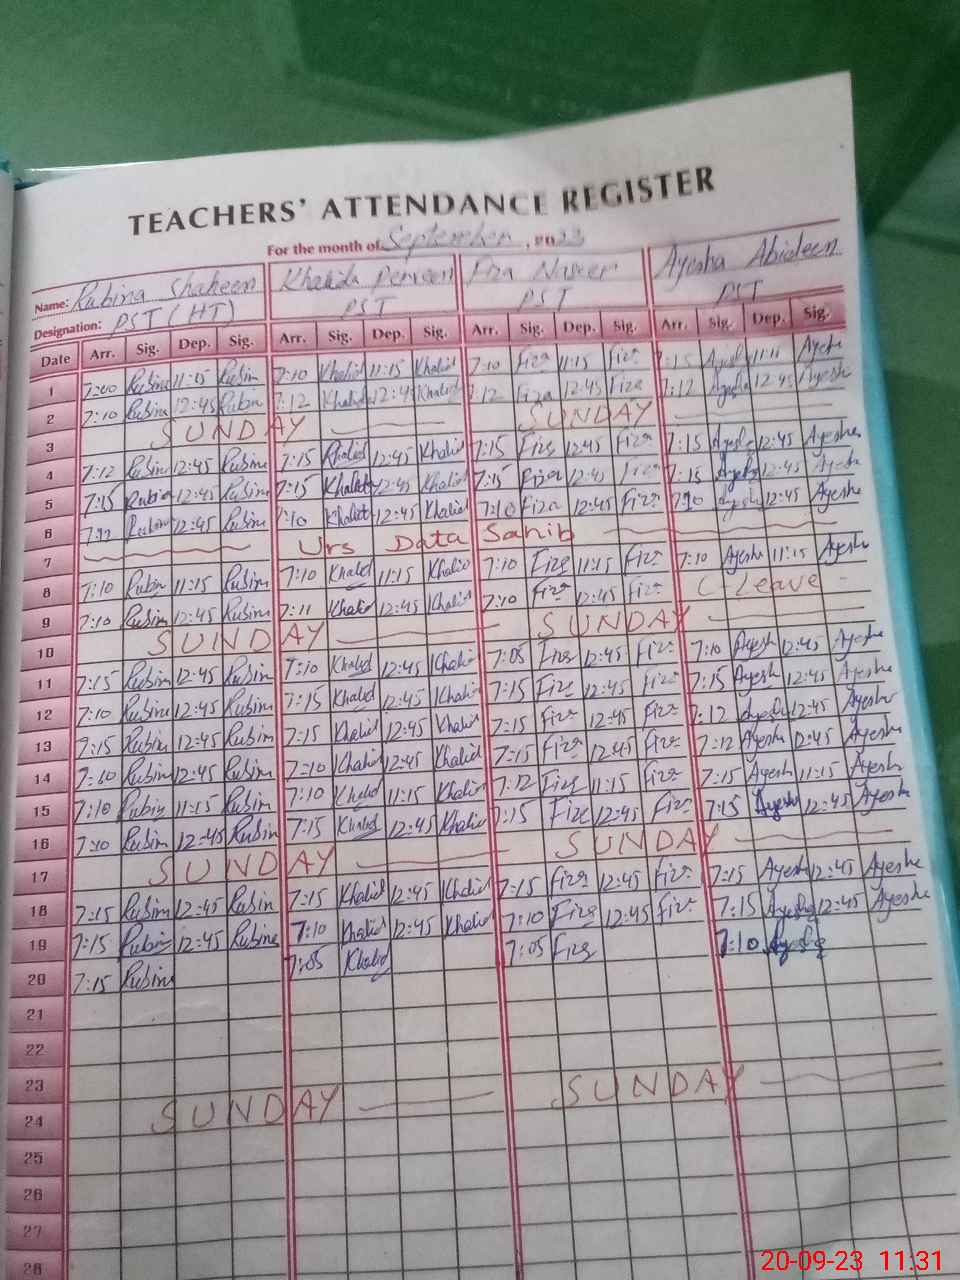 TEACHERS' ATTENDANCE REGISTER
For the month of September, 2023
Name: Rubina Shaheen Khalida Perveen Fiza Naseer Ayesha Abideen
Designation: PST (HT) PST PST PST
Date Arr. Sig. Dep. Sig. Arr. Sig. Dep. Sig. Arr. Sig. Dep. Sig. Arr. Sig. Dep. Sig.
1 7:00 Rubina 11:15 Rubin 7:10 Khalid 11:15 Khalid 7:10 Fiza 11:15 Fiza 7:15 Ayesh 11:15 Ayesh
2 7:10 Rubina 12:45 Rubin 7:12 Khalid 12:45 Khalid 7:12 Fiza 12:45 Fiza 7:12 Ayesha 12:45 Ayesha
3 SUNDAY SUNDAY
4 7:12 Rubin 12:45 Rubina 7:15 Khalid 12:45 Khalid 7:15 Fiza 12:45 Fiza 7:15 Ayesha 12:45 Ayesha
5 7:15 Rubia 12:45 Rubina 7:15 Khalid 12:45 Khalid 7:15 Fiza 12:45 Fiza 7:15 Ayesha 12:45 Ayesha
6 Rubina 12:45 Rubina 7:10 Khalid 12:45 Khalid 7:10 Fiza 12:45 Fiza 7:10 Ayesha 12:45 Ayesha
7 Urs Data Sahib
8 7:10 Rubin 11:15 Rubina 7:10 Khaled 11:15 Khalid 7:10 Fiza 11:15 Fiza 7:10 Ayesh 11:15 Ayesh
9 7:10 Rubina 12:45 Rubina 7:11 Khalid 12:45 Khalid 7:10 Fiza 12:45 Fiza C-Leave
10 SUNDAY SUNDAY
11 7:15 Rubina 12:45 Rubina 7:10 Khalid 12:45 Khalid 7:05 Fiza 12:45 Fiza 7:10 Ayesha 12:45 Ayesha
12 7:10 Rubina 12:45 Rubina 7:15 Khalid 12:45 Khalid 7:15 Fiza 12:45 Fiza 7:15 Ayesh 12:45 Ayesha
13 7:15 Rubin 12:45 Rubin 7:15 Khalid 12:45 Khalid 7:15 Fiza 12:45 Fiza 7:12 Ayesha 12:45 Ayesha
14 7:10 Rubin 12:45 Rubin 7:10 Khalid 12:45 Khalid 7:15 Fiza 12:45 Fiza 7:12 Ayesh 12:45 Ayesha
15 7:10 Rubin 11:15 Rubin 7:10 Khalid 11:15 Khalid 7:12 Fiza 11:15 Fiza 7:15 Ayesh 11:15 Ayesha
16 7:10 Rubin 12:45 Rubin 7:15 Khalid 12:45 Khalid 7:15 Fiza 12:45 Fiza 7:15 Ayesh 12:45 Ayesha
17 SUNDAY SUNDAY
18 7:15 Rubin 12:45 Rubin 7:15 Khalid 12:45 Khalid 7:15 Fiza 12:45 Fiza 7:15 Ayesh 12:45 Ayesha
19 7:15 Rubin 12:45 Rubina 7:10 Khalid 12:45 Khalid 7:10 Fiza 12:45 Fiza 7:15 Ayesha 12:45 Ayesha
20 7:15 Rubina 7:05 Khalid 7:05 Fiza 7:10 Ayesha
21
22
23
24 SUNDAY SUNDAY
25
26
27
28
20-09-23 11:31